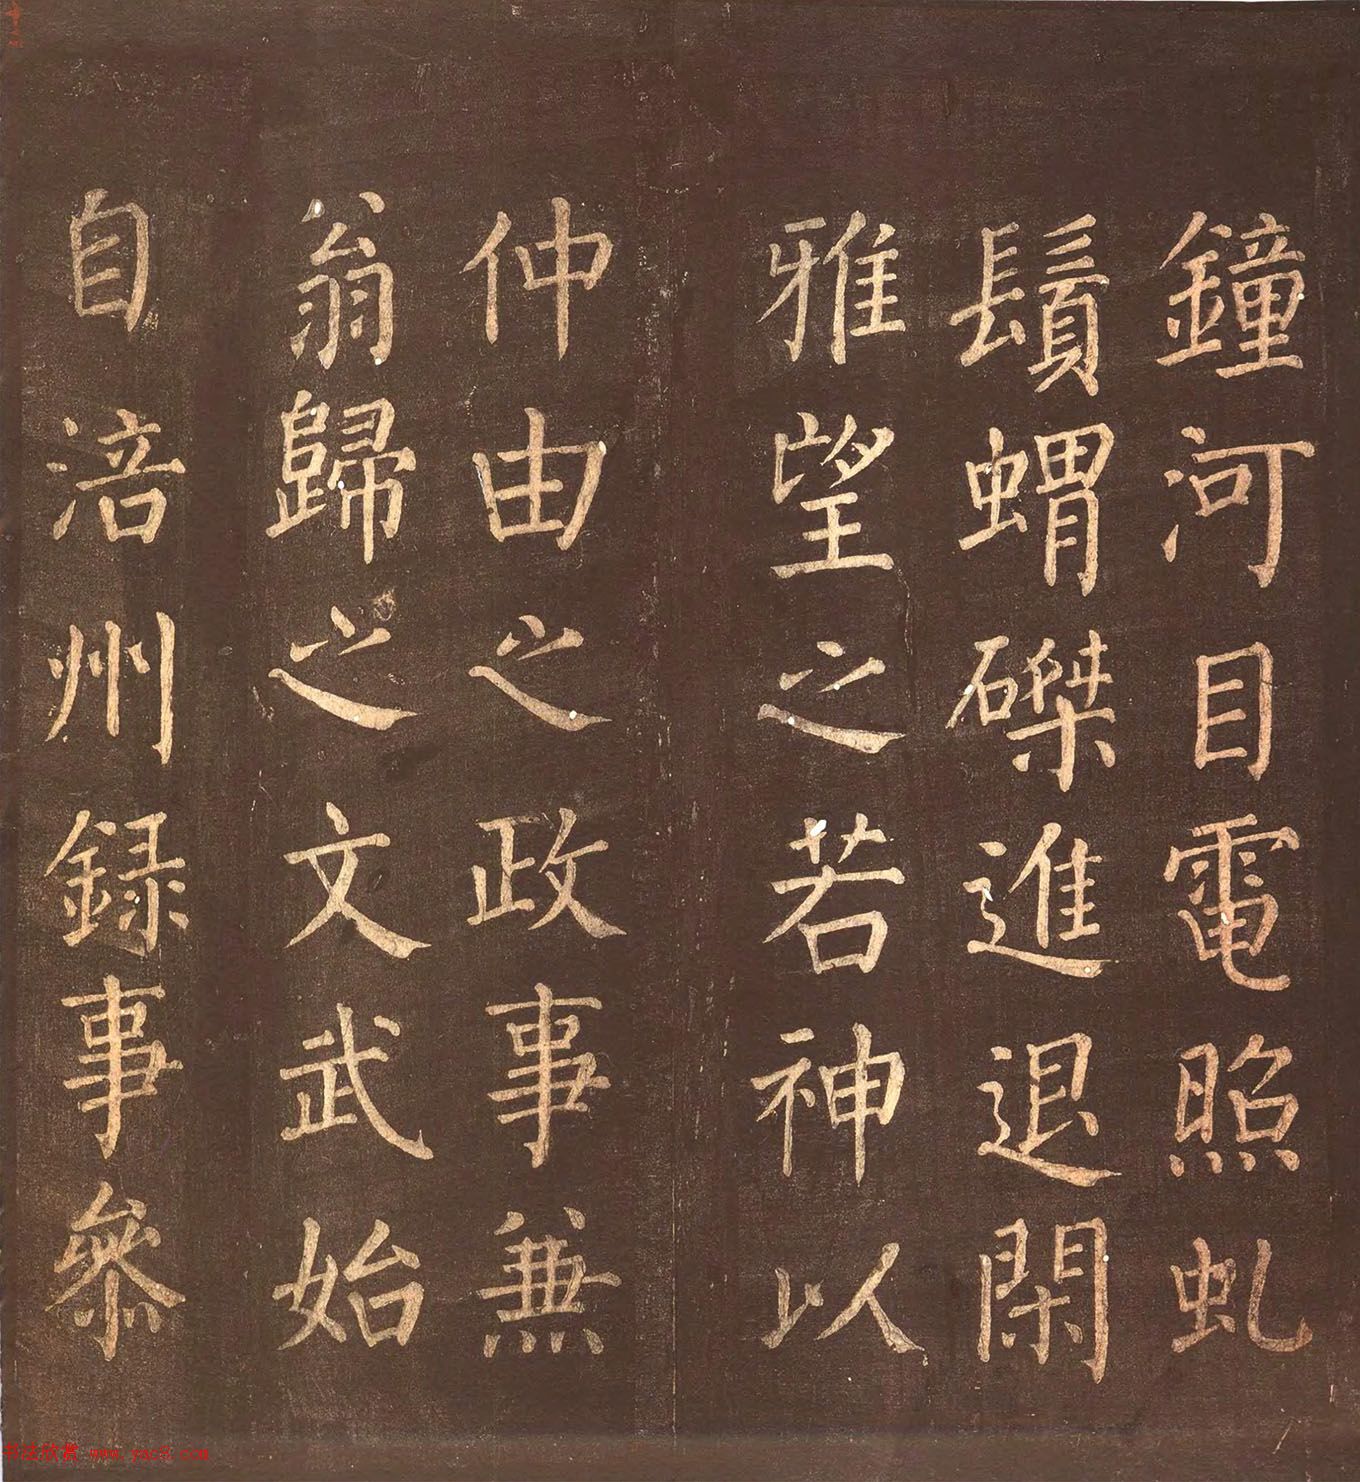 鐘河目電照虬
鬚蝟磔進退閑
雅望之若神以
仲由之政事兼
翁歸之文武始
自涪州録事參
书法欣赏 www.yac8.com